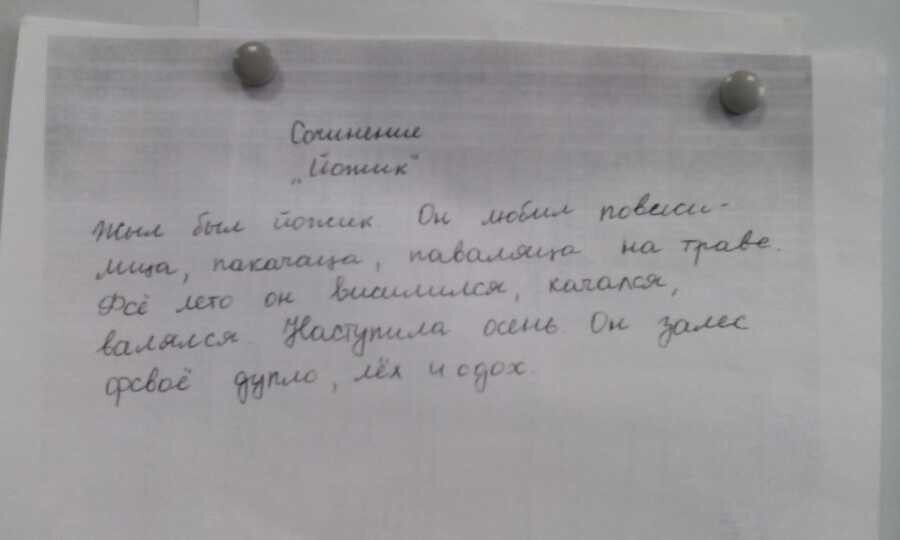 Сочинение
„Йожик"
Жыл был йожик. Он любил повесили-
лица, пакачаица, паваляица на траве.
Фсё лето он висилился, качался,
валялся. Наступила осень. Он залес
фсваё дупло, лёх и сдох.